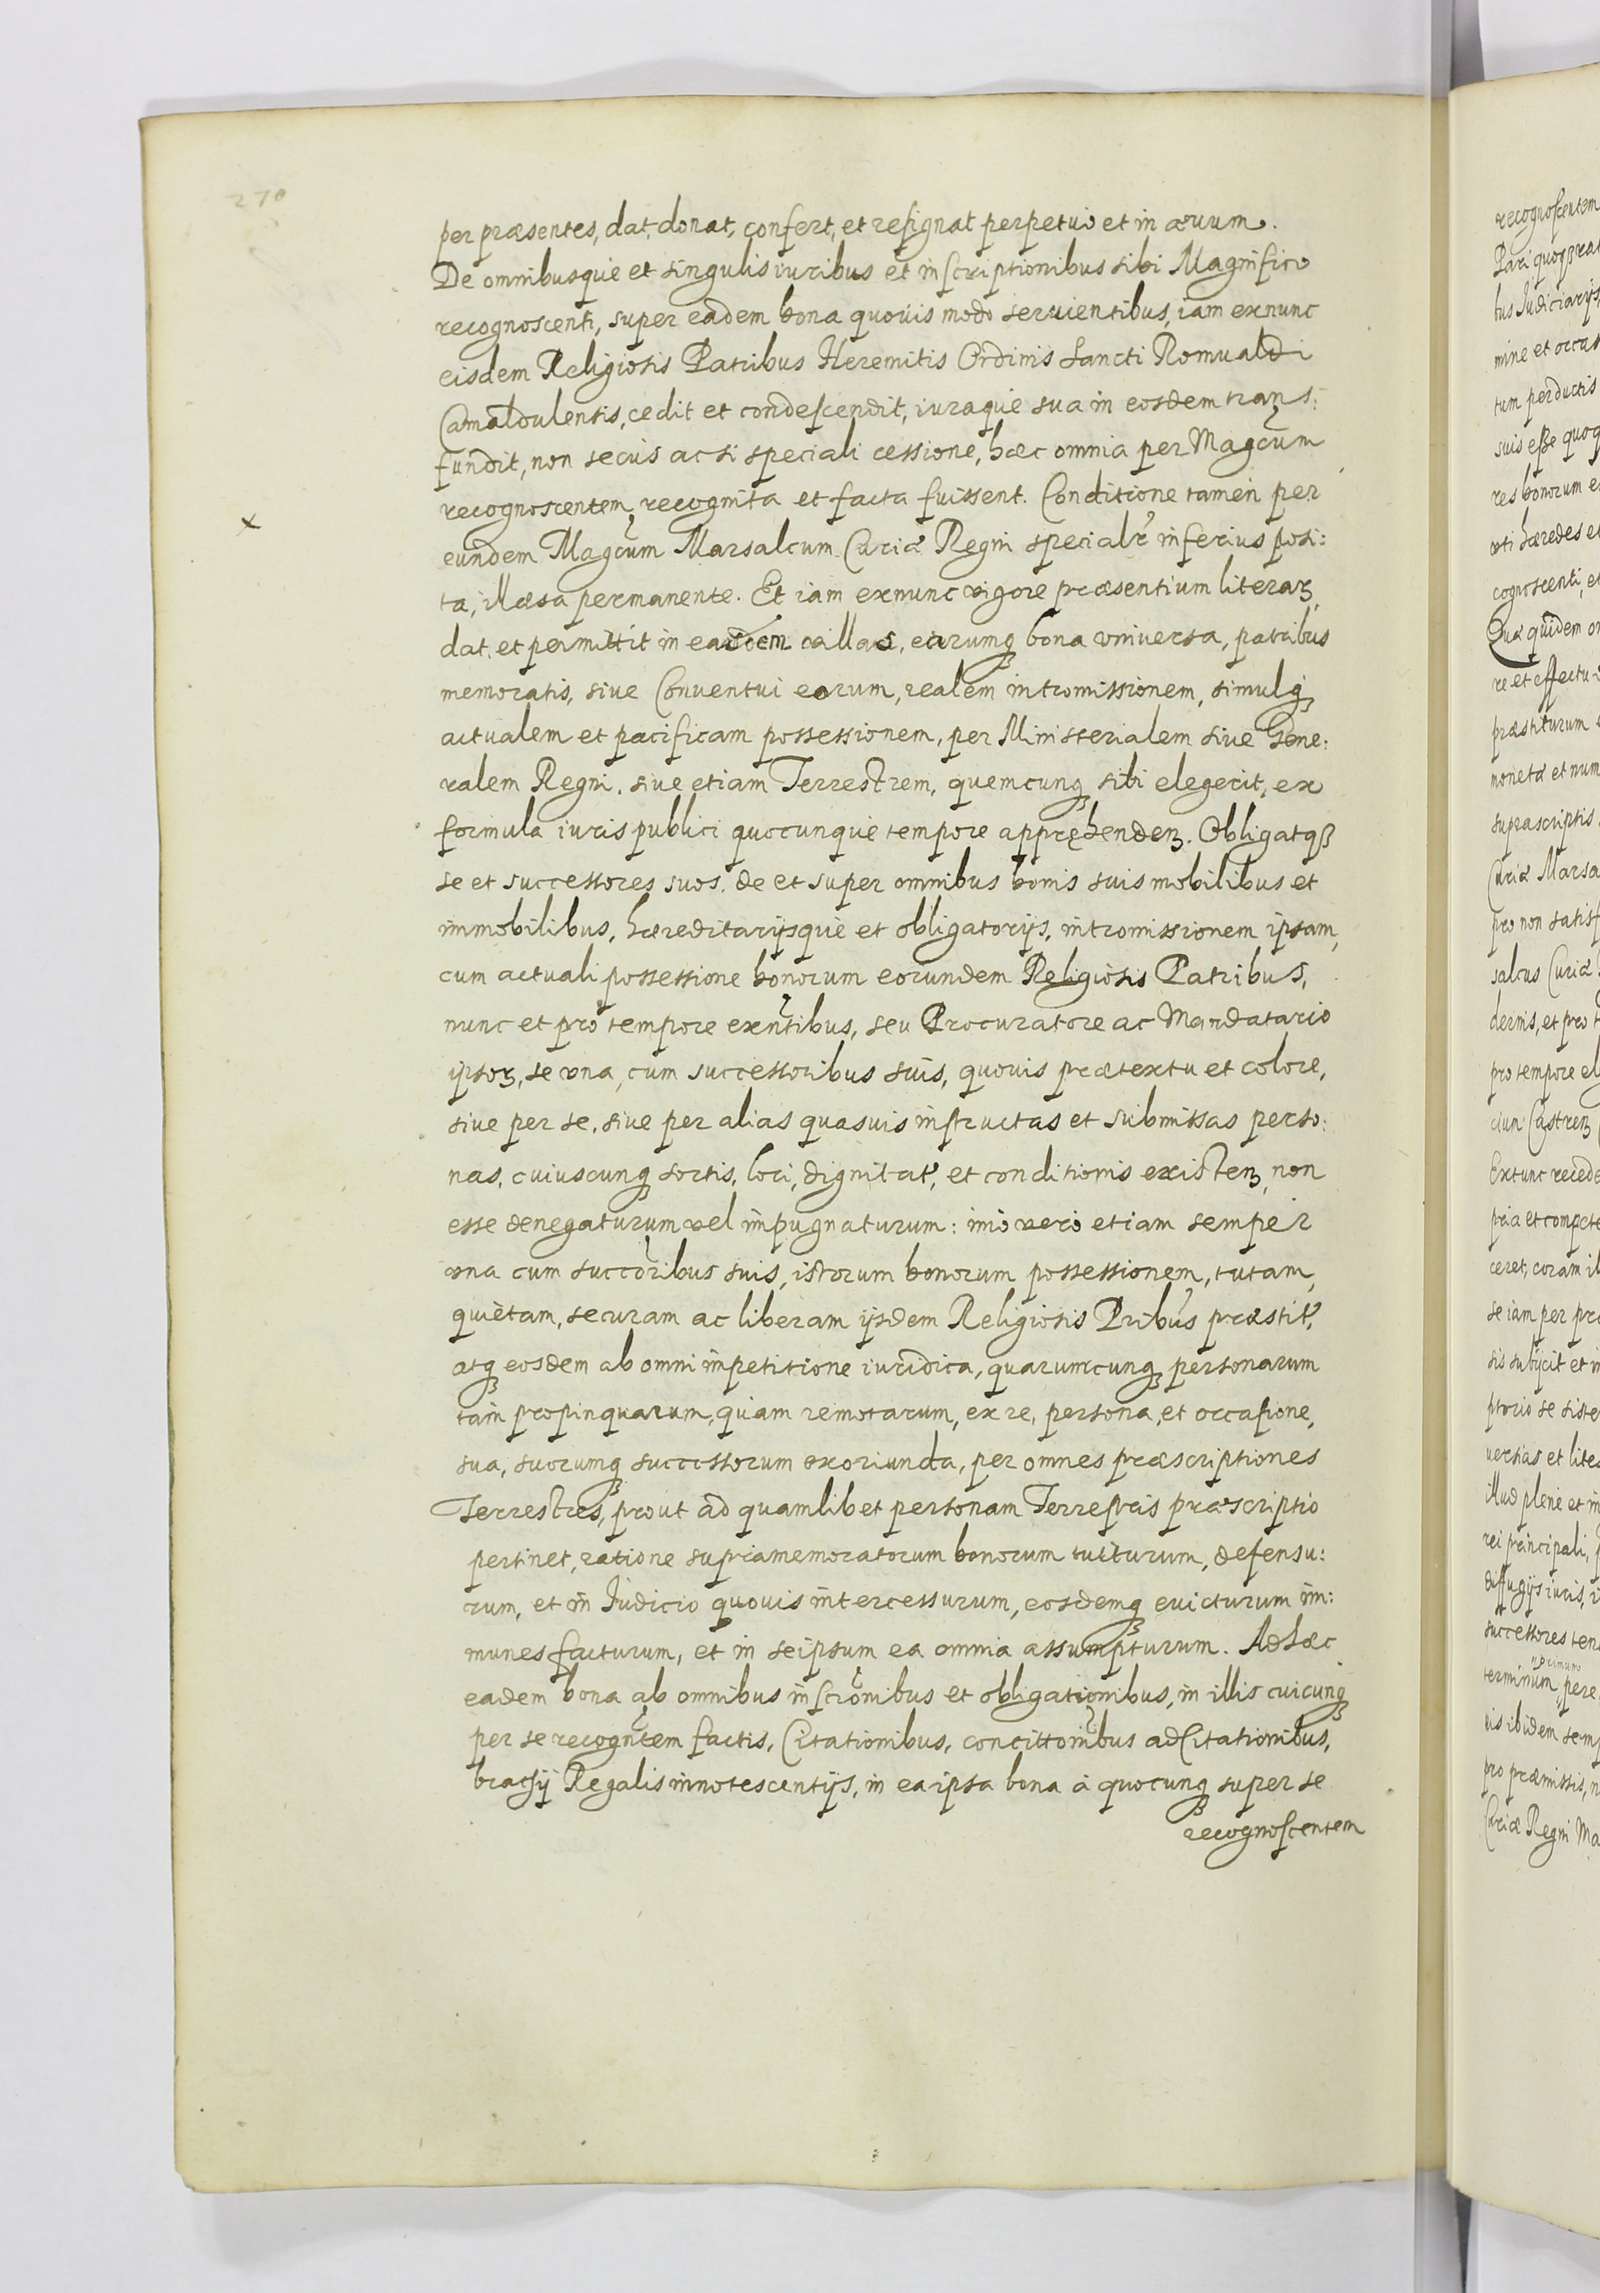 270
per præsentes, dat, donat, confert, et resignat perpetuò et in æuum.
De omnibusque et singulis iuribus et inscriptionibus sibi Magnifico
recognoscenti, super eadem bona quouis modo seruientibus, iam exnunc
eisdem Religiosis Patribus Heremitis Ordinis Sancti Romualdi
Camaldulensis, cedit et condescendit, iuraque sua in eosdem trans:
fundit, non secus ac si speciali cessione, hæc omnia per Magcum
recognoscentem, recognita et facta fuissent. Conditione tamen per
eundem Magcum Marsalcum Curiæ Regni specialr inferius posi:
ta, illæsa permanente. Et iam exnunc vigore præsentium literaꝝ
dat et permittit in easdem villas, earumq bona vniuersa, patribus
memoratis, siue Conuentui eorum, realem intromissionem, simulq
actualem et pacificam possessionem, per Ministerialem siue Gene:
ralem Regni, siue etiam Terrestrem, quemcunq sibi elegerit, ex
formula iuris publici quocunque tempore apprehendeꝝ. Obligatqꝫ
se et successores suos, de et super omnibus bonis suis mobilibus et
immobilibus, hæreditarijsque et obligatorijs, intromissionem ipsam,
cum actuali possessione bonorum eorundem Religiosis Patribus,
nunc et pro tempore exentibus, seu Procuratore ac Mandatario
ipsoꝝ, se vna cum successoribus suis, quouis prætextu et colore,
siue per se, siue per alias quasuis instructas et submissas perso:
nas, cuiuscunq sortis, loci, dignitat, et conditionis existeꝝ, non
esse denegaturum vel impugnaturum: imò verò etiam semper
vna cum succoribus suis, istorum bonorum possessionem, tutam,
quietam, securam ac liberam ijsdem Religiosis Pribus præstit,
atq eosdem ab omni impetitione iuridica, quarumcunq personarum
tam propinquarum, quam remotarum, ex re, persona, et occasione,
sua, suorumq successorum exoriunda, per omnes præscriptiones
Terrestres, prout ad quamlibet personam Terrestris præscriptio
pertinet, ratione supramemoratorum bonorum tuiturum, defensu:
rum, et in Iudicio quouis intercessurum, eosdemq euicturum im:
munes facturum, et in seipsum ea omnia assumpturum. Ad hæc
eadem bona ab omnibus inscronibus et obligationibus, in illis cuicunq
per se recogntem factis, Citationibus, concittonibus adCitationibus,
brachij Regalis innotescentijs, in ea ipsa bona à quocunq super se
recognoscentem